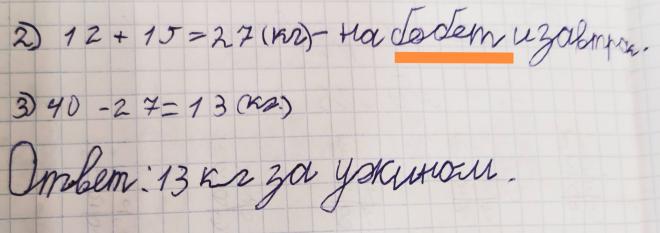 2) 12 + 15 = 27 (кг) - на бобет и завтрак.
3) 40 - 27 = 13 (кг.)
Ответ: 13 кг за ужином.